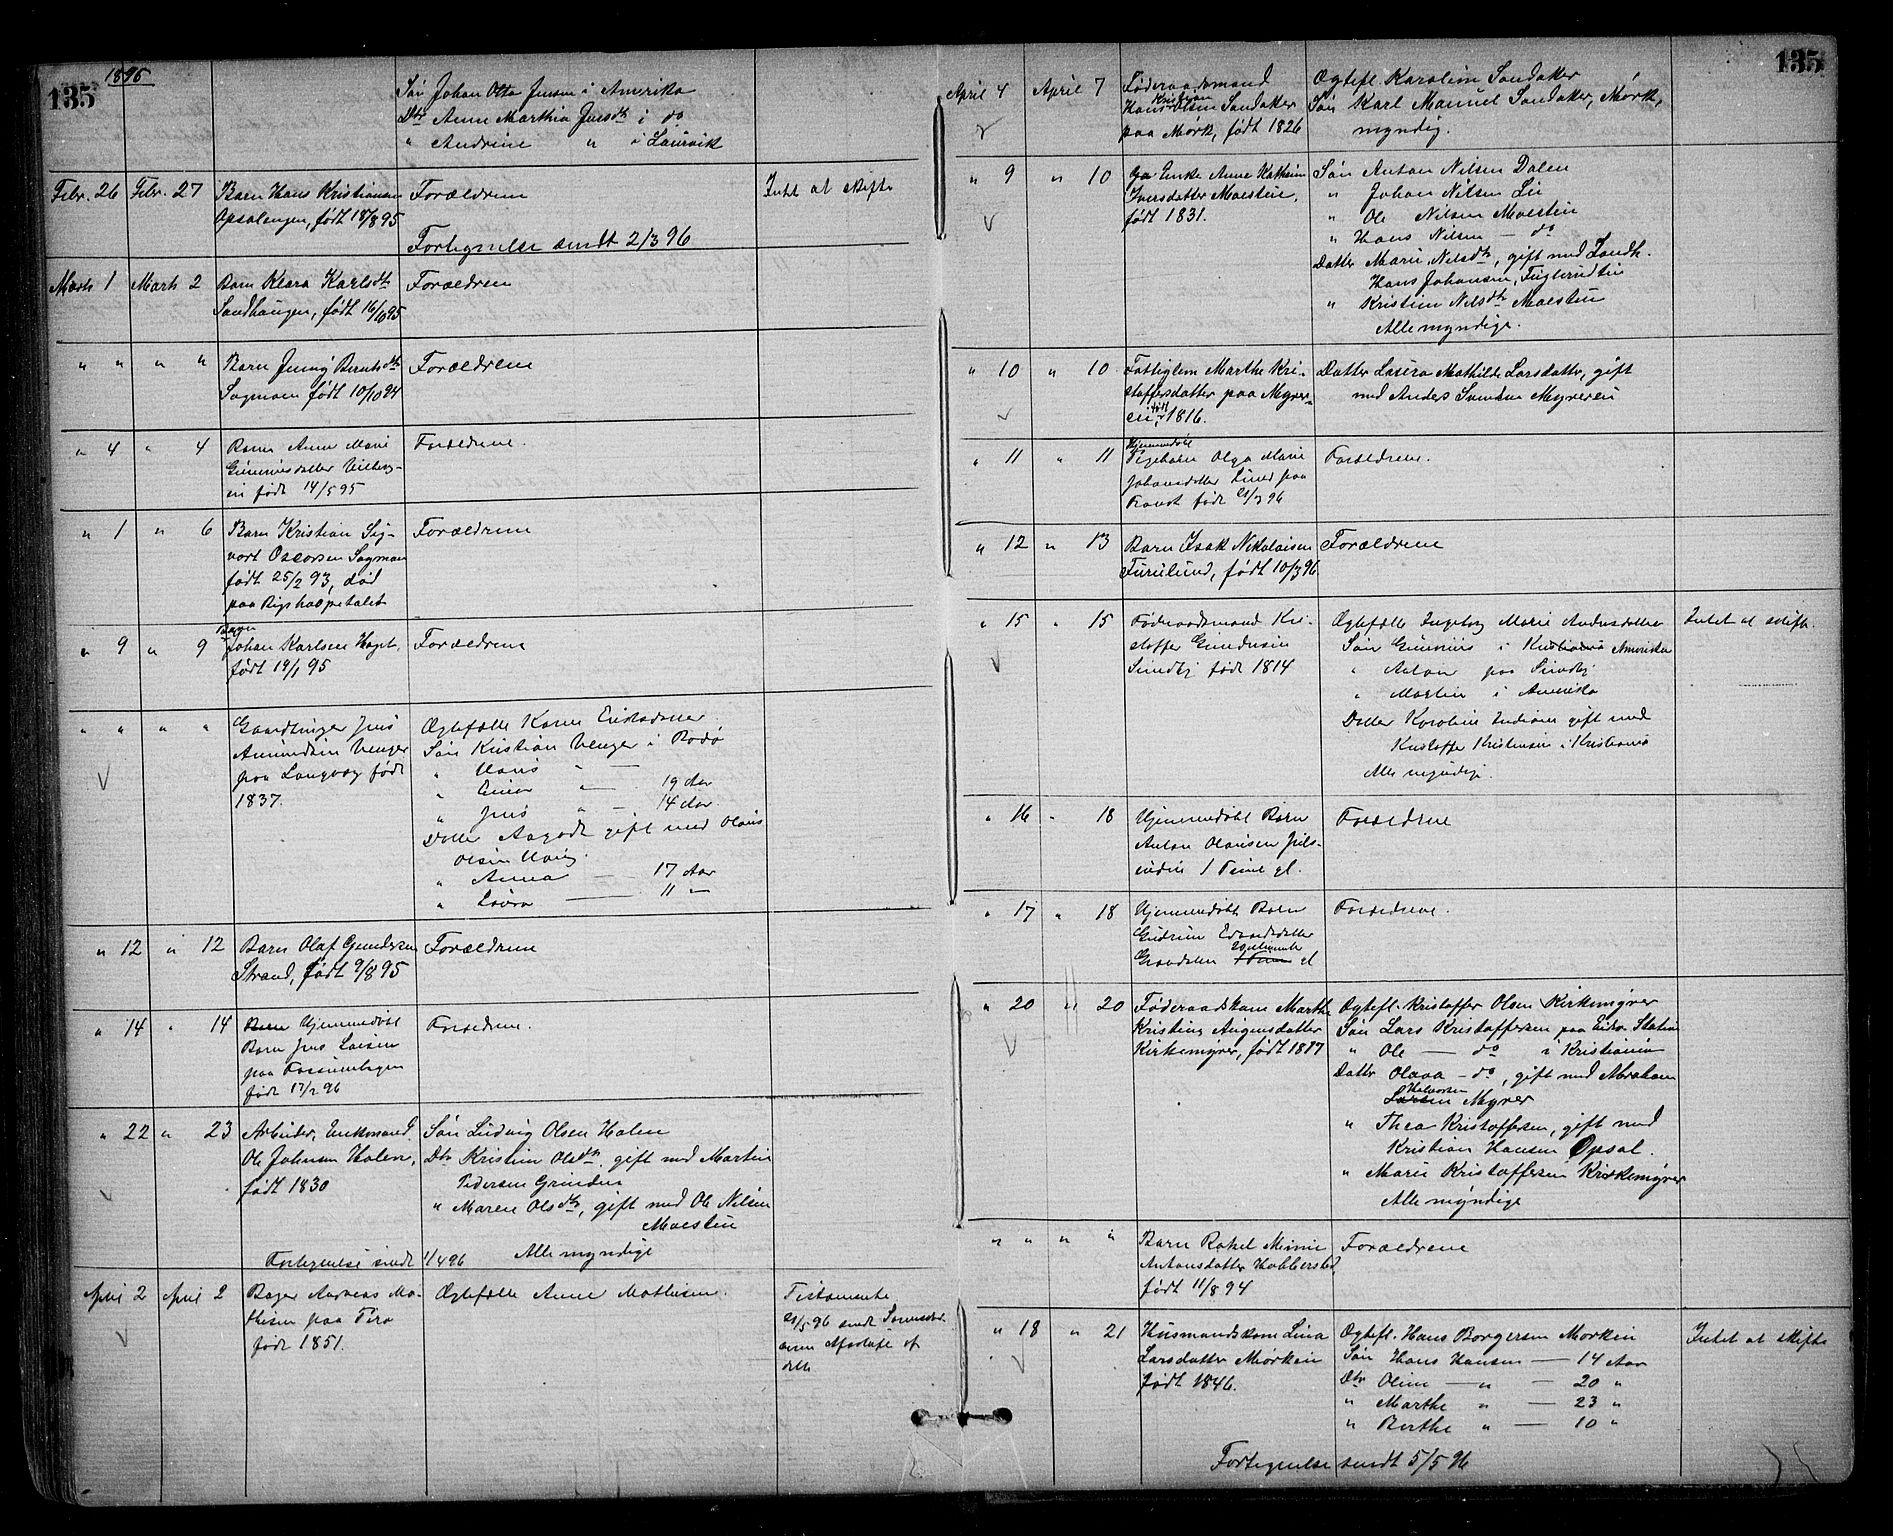 135
1896
Søn Johan Otto Jensen i Amerika
Dtr Anne Marthia Jensdtr i do
" Andrine " i Laurvik
Febr. 26 Febr. 27 Barn Hans Kristiansen Forældrene Intet at skifte
Opsalengen, født 18/8 95
Fortegnelse sendt 2/3 96
Marts 1 Marts 2 Barn Klara Karlsdtr Forældrene
Sandhaugen, født 16/10 95
" " " " Barn Jenny Berntsdtr Forældrene
Sagmoen født 10/10 94
" 4 " 4 Barn Anne Marie Forældrene.
født 14/5 95
" 1 " 6 Barn Kristian Sig- Forældrene
vart Oscarsen Sagmoen
født 25/2 93, død
paa Rigshospitalet
" 9 " 9 Barn
Johan Karlsen Forældrene
født 19/1 95
" " " " Gaardbruger Jens Ægtefælle Karen
Amundsen Venger Søn Kristian Venger i Bodø
paa Langvag født " Hans " —
1837. " Einar " — 19 Aar
" Jens " — 14 Aar
Datter Aagodt gift med Olaus
Olsen
" Anna — 17 Aar
" Laura — 11 "
" 12 " 12 Barn Olaf Gundersen Forældrene
Strand, født 9/8 95
" 14 " 14 Barn Hjemmedøbt Forældrene.
Barn Jens Larsen
paa Fossumhagen
født 17/2 96
" 22 " 23 Arbeider, Enkemand Søn Ludvig Olsen Holen
Ole Johnsen Holen, Dtr Kristine Olsdtr. gift med Martin
født 1830 Pedersen Grinden
" Maren Olsdtr, gift med Ole Nilsen
Moestuen
Fortegnelse sendt 1/4 96 Alle myndige
April 2 April 2 Bager Andreas Ma- Ægtefælle Anne Mathisen. Testamente
thisen paa 21/5 96 sendt
født 1851. af
dette
135
April 4 April 7 Føderaadsmand Ægtefl. Karoline Sandaker
Hans Kristian Olsen Sandaker Søn Karl Manuel Sandaker, Mørk,
paa Mørk, født 1826 myndig.
" 9 " 10 Enke Anne Kathrine Søn Anton Nilsen Dalen
Iversdatter Moestue, " Johan Nilsen Lie
født 1831. " Ole Nilsen Moestue
" Hans Nilsen — do
Datter Marie Nilsdtr, gift med Landh.
Hans Johansen, Fuglerudtu
" Kristine Nilsdtr Moestue
Alle myndige.
" 10 " 10 Fattiglem Marthe Kri- Datter Laura Mathilde Larsdatter, gift
stoffersdatter paa Myrer- med Anders Svendsen Myrereie
eie, født 1816.
" 11 " 11 Hjemmedøbt
Pigebarn Olga Marie Forældrene.
Johansdatter Lund paa
født 21/3 96
" 12 " 13 Barn Isak Nikolaisen Forældrene
Furulund, født 10/3 96
" 15 " 15 Føderaadsmand Kri- Ægtefælle Ingeborg Marie Andersdatter Intet at skifte.
stoffer Gundersen Søn Gunnius i Kristiania Amerika
Sundby født 1814 " Anton paa Sundby
" Martin i Amerika
Datter Karoline gift med
Kristoffer Kristensen i Kristiania
Alle myndige.
" 16 " 18 Hjemmedøbt Barn Forældrene
Anton Olausen
1 Time gl.
" 17 " 18 Hjemmedøbt Barn Forældrene.
Gudrun Edvardsdatter
Graadalen 20 Minuter 1 Time gl
" 20 " 20 Føderaadskone Marthe Ægtefl. Kristoffer Olsen Kirkemyrer
Kristine Augensdatter Søn Lars Kristoffersen paa Eidsv. Station
Kirkemyrer, født 1817 " Ole — do i Kristiania
Datter Olava — do, gift med Abraham
Halvorsen
Larsen Myrer
" Thea Kristoffersen, gift med
Kristian Hansen Opsal.
" Marie Kristoffersen Kirkemyrer
Alle myndige
" " " " Barn Rakel Minnie Forældrene
Antonsdatter Hobberstad,
født 11/8 94
" 18 " 21 Husmandskone Lina Ægtefl. Hans Borgersen Morken Intet at skifte
Larsdatter Mørken Søn Hans Hansen — 14 Aar
født 1846. Dtr Oline — " — 20 "
" Marthe " — 23 "
" Berthe " — 10 "
Fortegnelse sendt 5/5 96